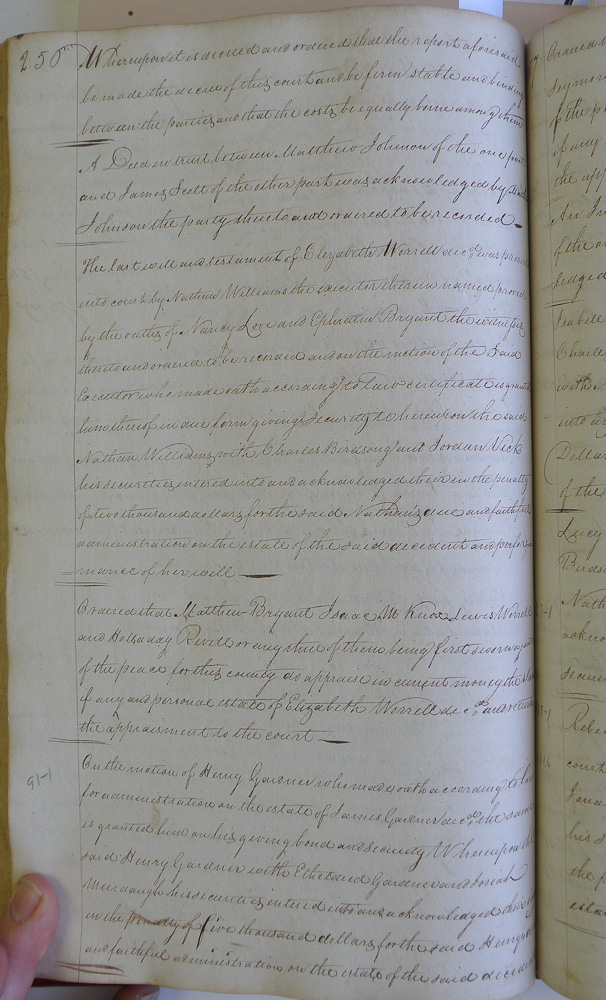 250
Whereupon it is decreed and ordered that the report aforesaid
be made the decree of this court and be firm stable and binding
between the parties and that the costs be equally borne among them
A Deed in trust between Matthew Johnson of the one part
and James Scott of the other part was acknowledged by
Johnson the party thereto and ordered to be recorded
The last will and testament of Elizabeth Worrell decd. was
into court by Nathan Williams the executor therein named proved
by the oaths of Nancy Love and Ephraim Bryant the witnesses
thereto and ordered to be recorded and on the motion of the said
Executor who made oath according to law certificate is
him thereof in due form giving security Whereupon the said
Nathan Williams with Charles Birdsong and Jordan Vick
his securities entered into and acknowledged their in the penalty
of two thousand dollars for the said Nathans due and faithful
administration on the estate of the said decedent and perfor
mance of her will
Ordered that Matthew Bryant Isaac M Knox Lewis Worrell
and Holladay Revell or any three of them being first sworn
of the peace for this county do appraise in current money the
if any and personal estate of Elizabeth Worrell decd. and return
the appraisment to the court
91-1
On the motion of Henry Gardner who made oath according to law
for administration on the estate of James Gardner decd. the same
is granted him on his giving bond and security Whereupon the
said Henry Gardner with Etheldred Gardner and Josiah
Murdaugh his securities entered into and acknowledged their
in the penalty of five thousand dollars for the said Henrys
and faithful administration on the estate of the said
Ordered
Seymour
of the
of any
the app
An In
of the
ledged
Isabell
Charles
with
into
Dollar
of the
Lucy
Birds
Nath
ackno
secur
Rebe
court
his s
the p
esta